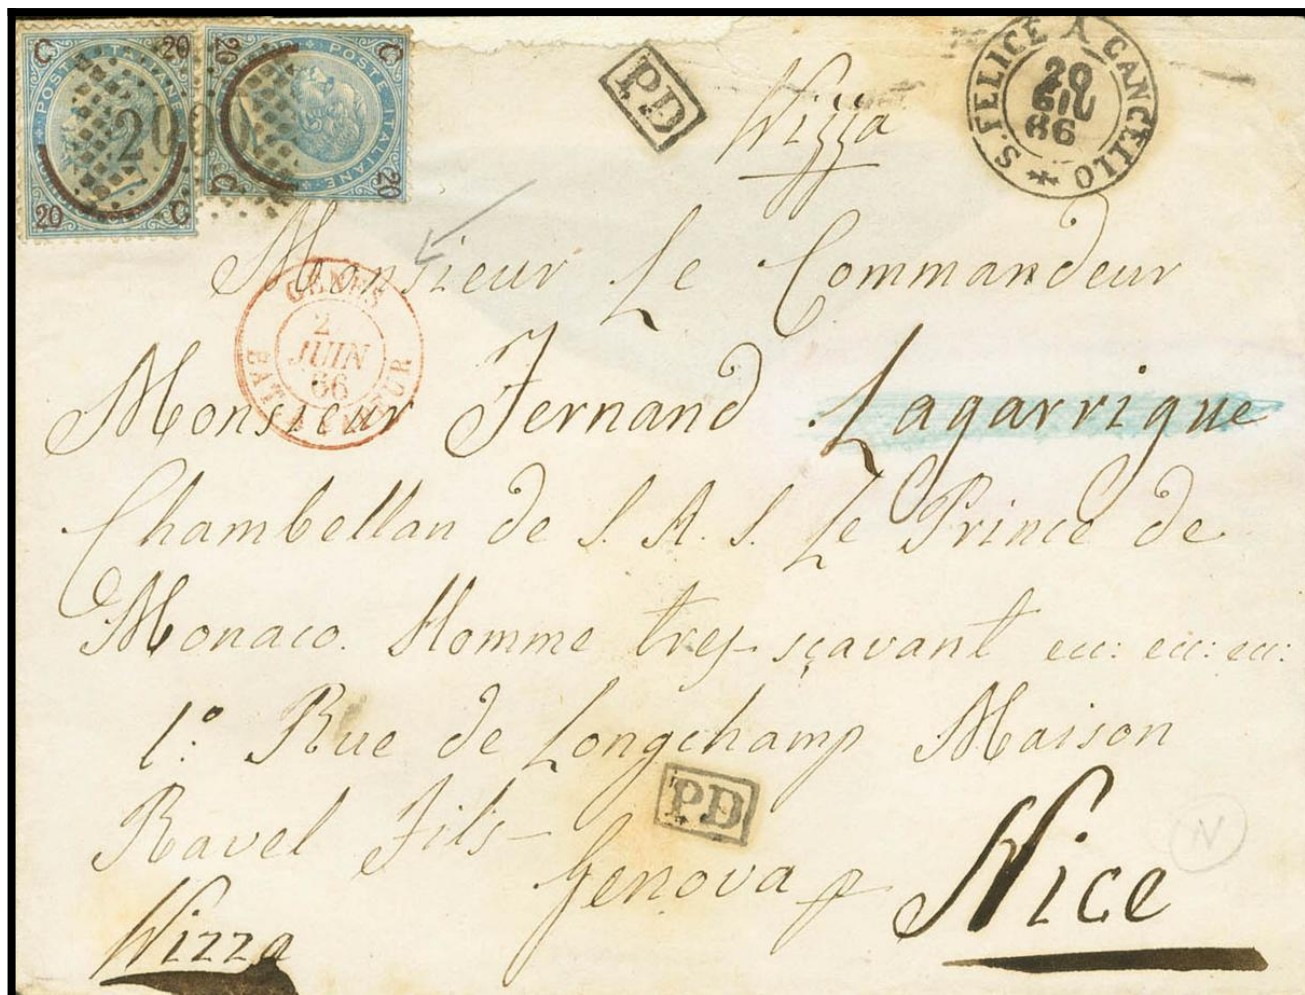 C 20
POSTE ITALIANE
20 C
20 C
POSTE ITALIANE
C 20
2000
PD
Nizza
S. FELICE A CANCELLO
20
GIU
66
Monsieur Le Commandeur
GENES
2
JUIN
66
BAT. A VAPEUR
Monsieur Fernand Lagarrigue
Chambellan de S. A. S. Le Prince de
Monaco. Homme tres sçavant ecc: ecc: ecc:
1.° Rue de Longchamp Maison
PD
Ravel Fils
Genova p Nice
N
Nizza